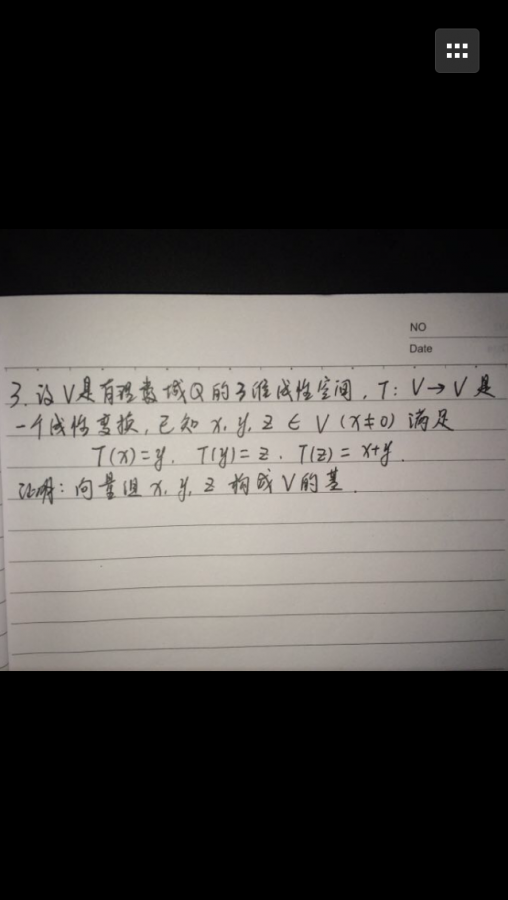 NO
Date
3. 设V是有理数域Q的3维线性空间, T: V→V是
一个线性变换, 已知 x, y, z ∈ V (x≠0) 满足
T(x)=y. T(y)=z. T(z)=x+y.
证明: 向量组 x, y, z 构成V的基.